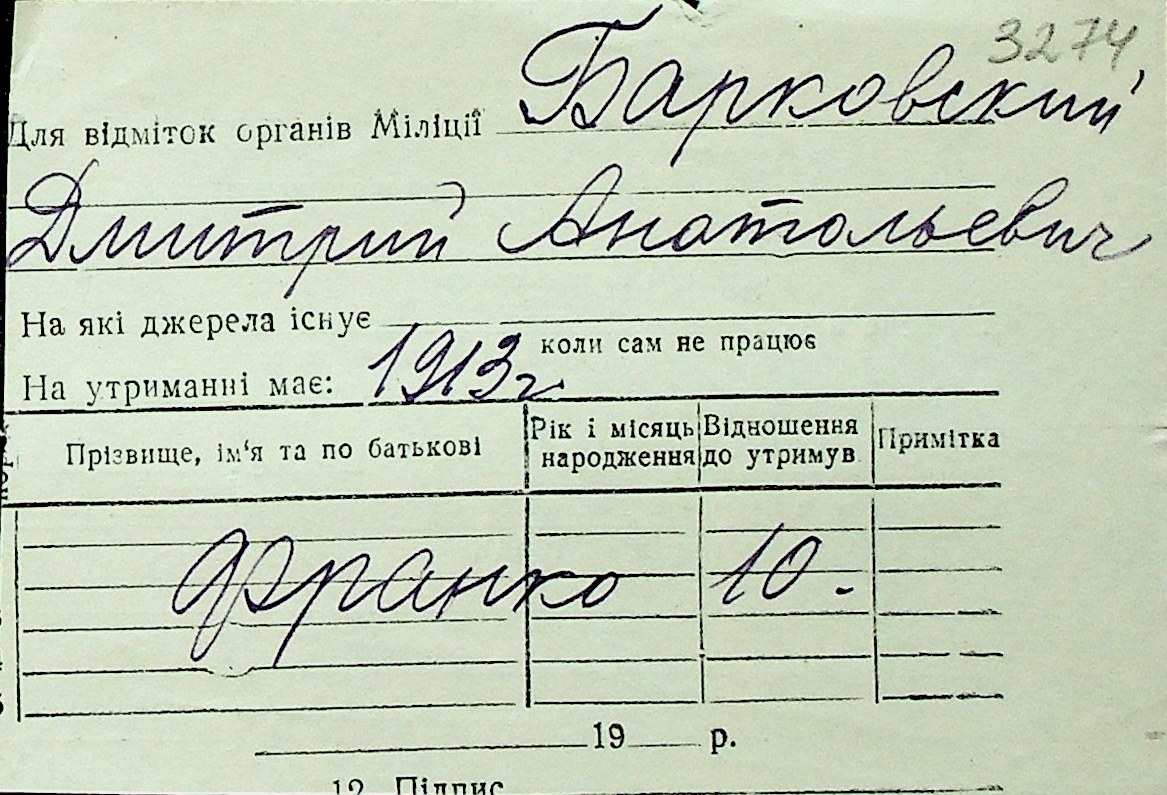 3274
Для відміток органів Міліції Барковский
Дмитрий Анатольевич
На які джерела існує
коли сам не працює
На утриманні має: 1913 г
Прізвище, ім‘я та по батькові Рік і місяць народження Відношення до утримув Примітка
Франко 10.
19 р.
12 Підпис